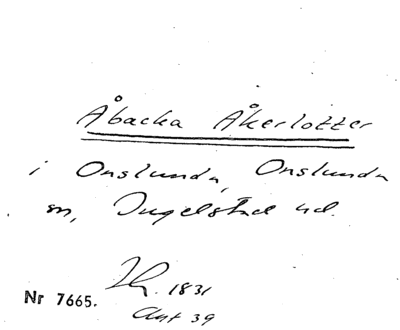 Åbacka Åkerlotter
i Onslunda, Onslunda
sn, Ingelstad hd.
1831
Nr 7665.
Akt 39